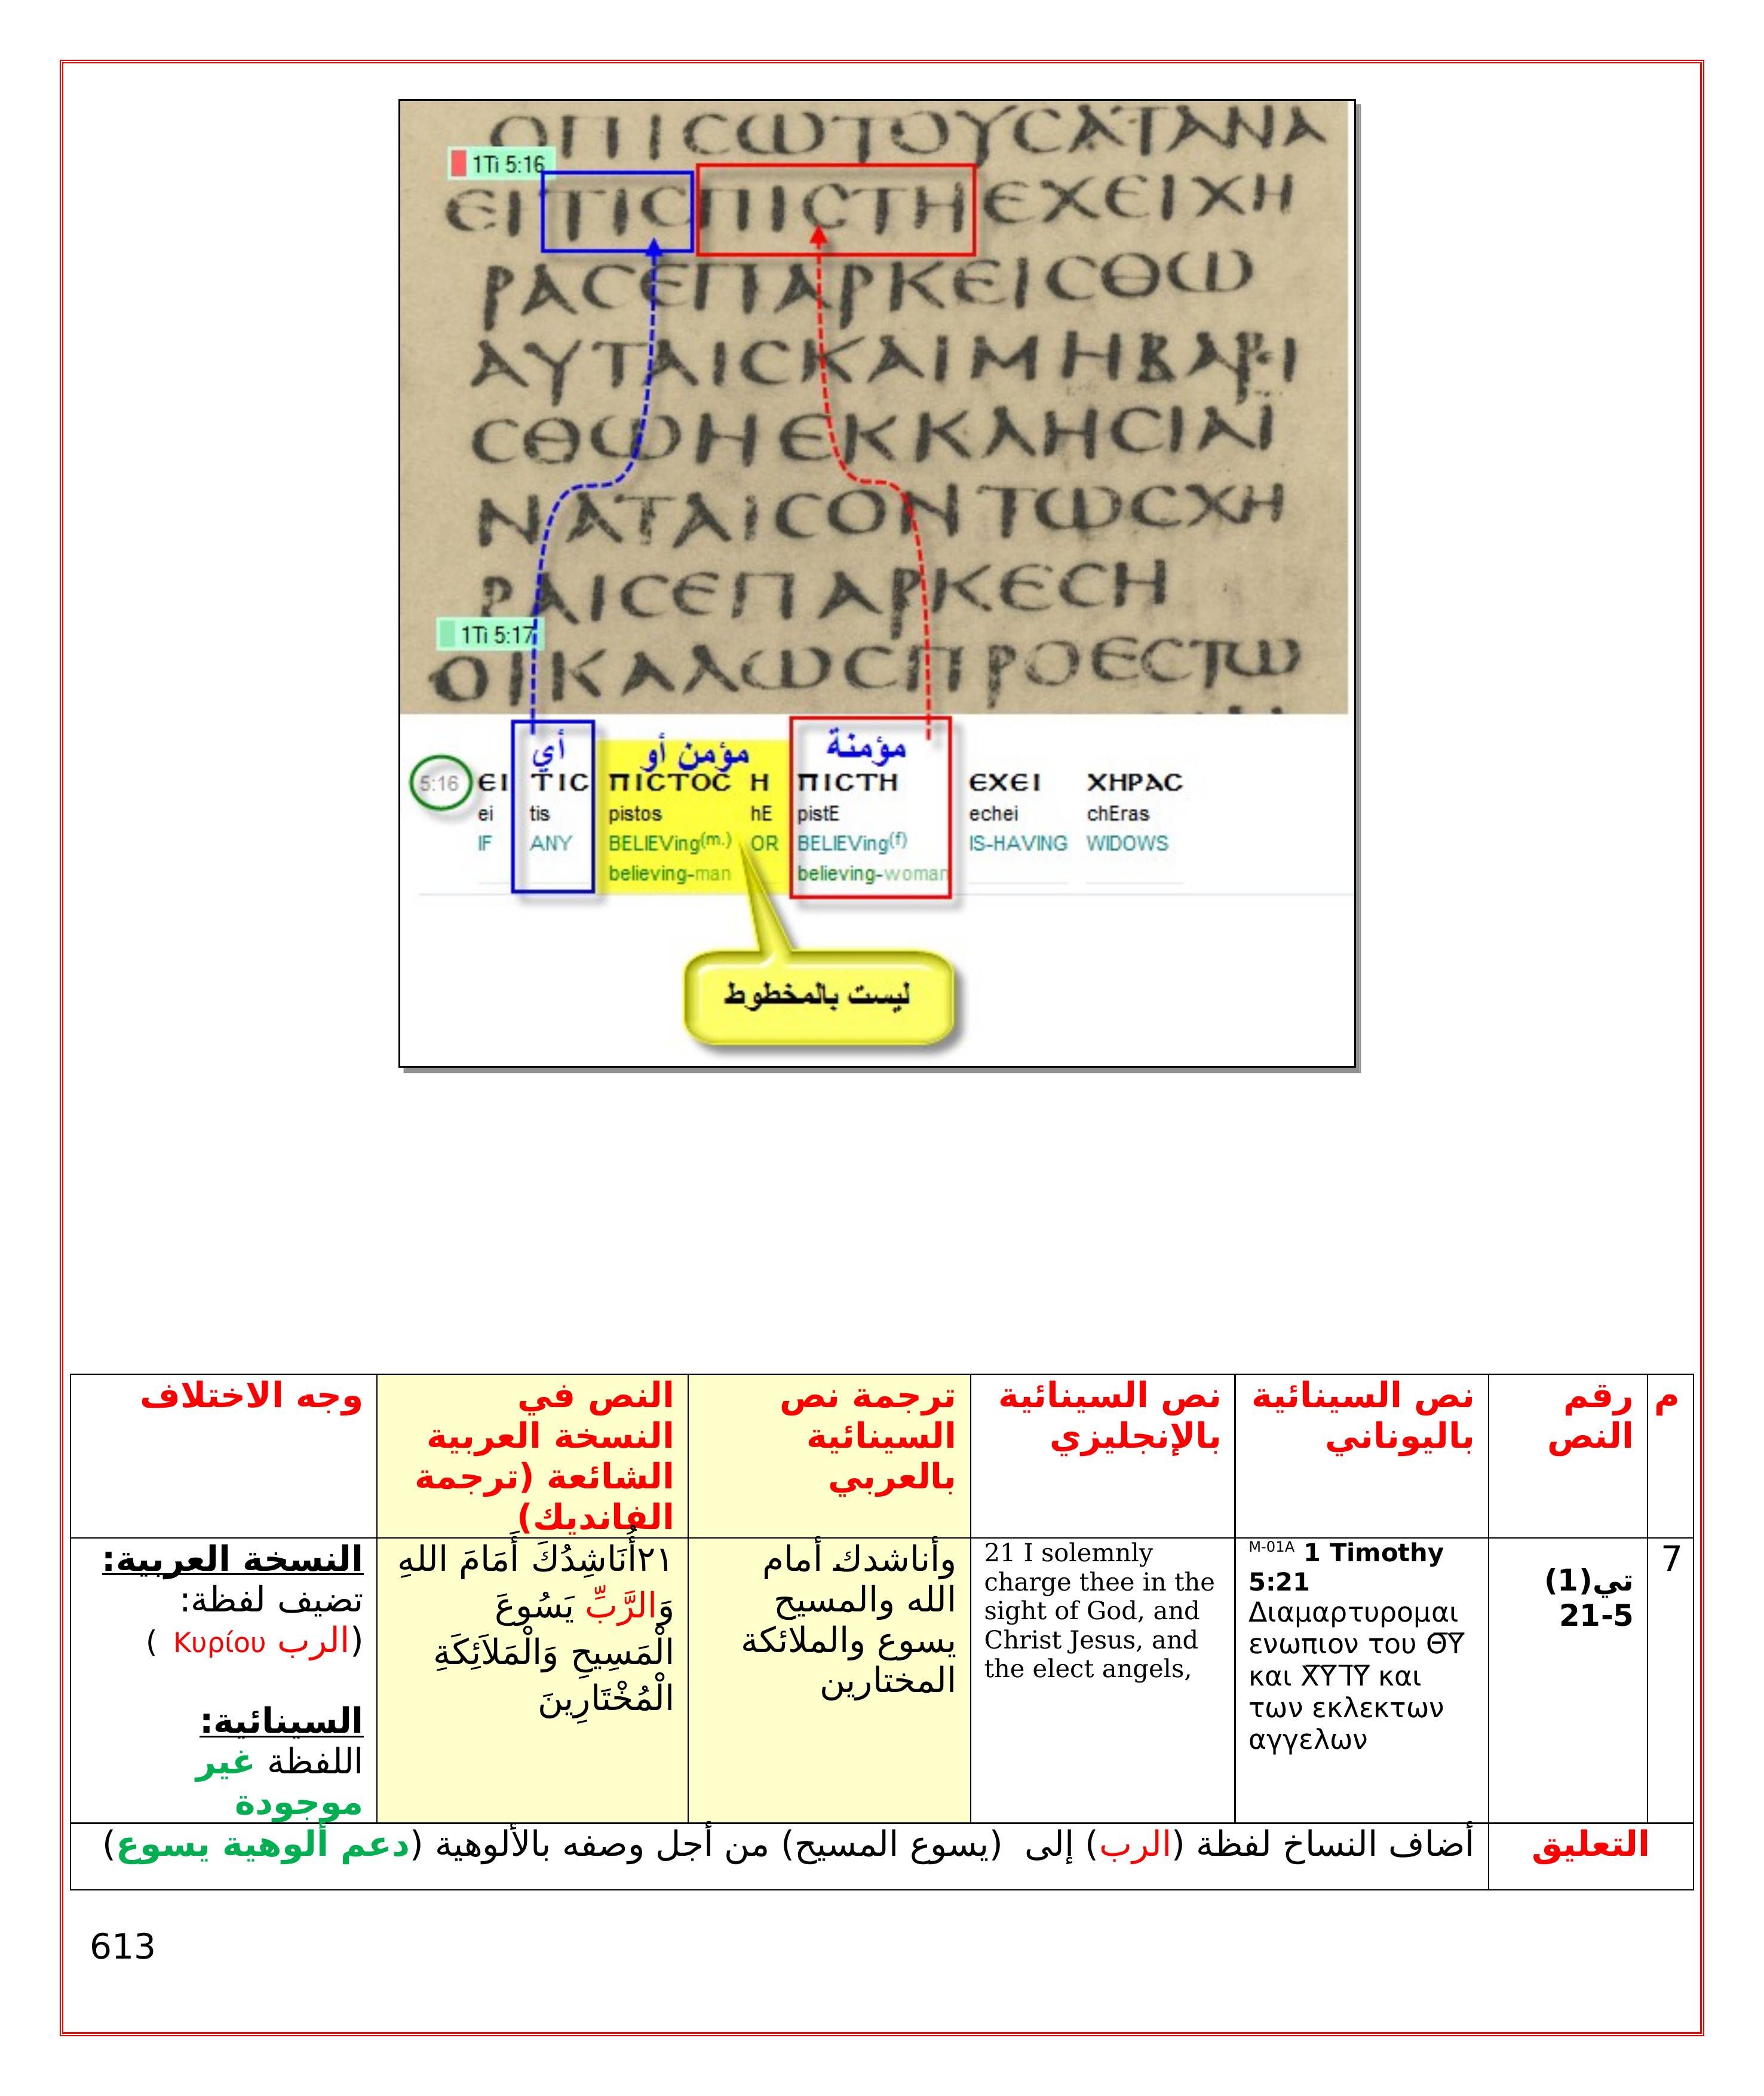 ΟΠΙCΩΤΟΥCΑΤΑΝΑ
1Ti 5:16
ΕΙΤΙCΠΙCΤΗΕΧΕΙΧΗ
ΡΑCΕΠΑΡΚΕΙCΘΩ
ΑΥΤΑΙCΚΑΙΜΗΒΑΡΙ
CΘΩΗΕΚΚΛΗCΙΑΪ
ΝΑΤΑΙCΟΝΤΩCΧΗ
ΡΑΙCΕΠΑΡΚΕCΗ
1Ti 5:17
ΟΙΚΑΛΩCΠΡΟΕCΤΩ
أي مؤمن أو مؤمنة
5:16 ЄΙ ΤΙC ΠΙCΤΟC Η ΠΙCΤΗ ЄΧЄΙ ΧΗΡΑC
ei tis pistos hE pistE echei chEras
IF ANY BELIEVing(m.) OR BELIEVing(f) IS-HAVING WIDOWS
believing-man believing-woman
ليست بالمخطوط
م
رقم
النص
نص السينائية
باليوناني
نص السينائية
بالإنجليزي
ترجمة نص
السينائية
بالعربي
النص في
النسخة العربية
الشائعة (ترجمة
الفانديك)
وجه الاختلاف
7
تي(1)
5-21
M-01A 1 Timothy
5:21
Διαμαρτυρομαι
ενωπιον του Θ̅Υ̅
και Χ̅Υ̅Ι̅Υ̅ και
των εκλεκτων
αγγελων
21 I solemnly
charge thee in the
sight of God, and
Christ Jesus, and
the elect angels,
وأناشدك أمام
الله والمسيح
يسوع والملائكة
المختارين
٢١أُنَاشِدُكَ أَمَامَ اللهِ
وَالرَّبِّ يَسُوعَ
الْمَسِيحِ وَالْمَلاَئِكَةِ
الْمُخْتَارِينَ
النسخة العربية:
تضيف لفظة:
(الرب Κυρίου )
السينائية:
اللفظة غير
موجودة
التعليق
أضاف النساخ لفظة (الرب) إلى (يسوع المسيح) من أجل وصفه بالألوهية (دعم ألوهية يسوع)
613